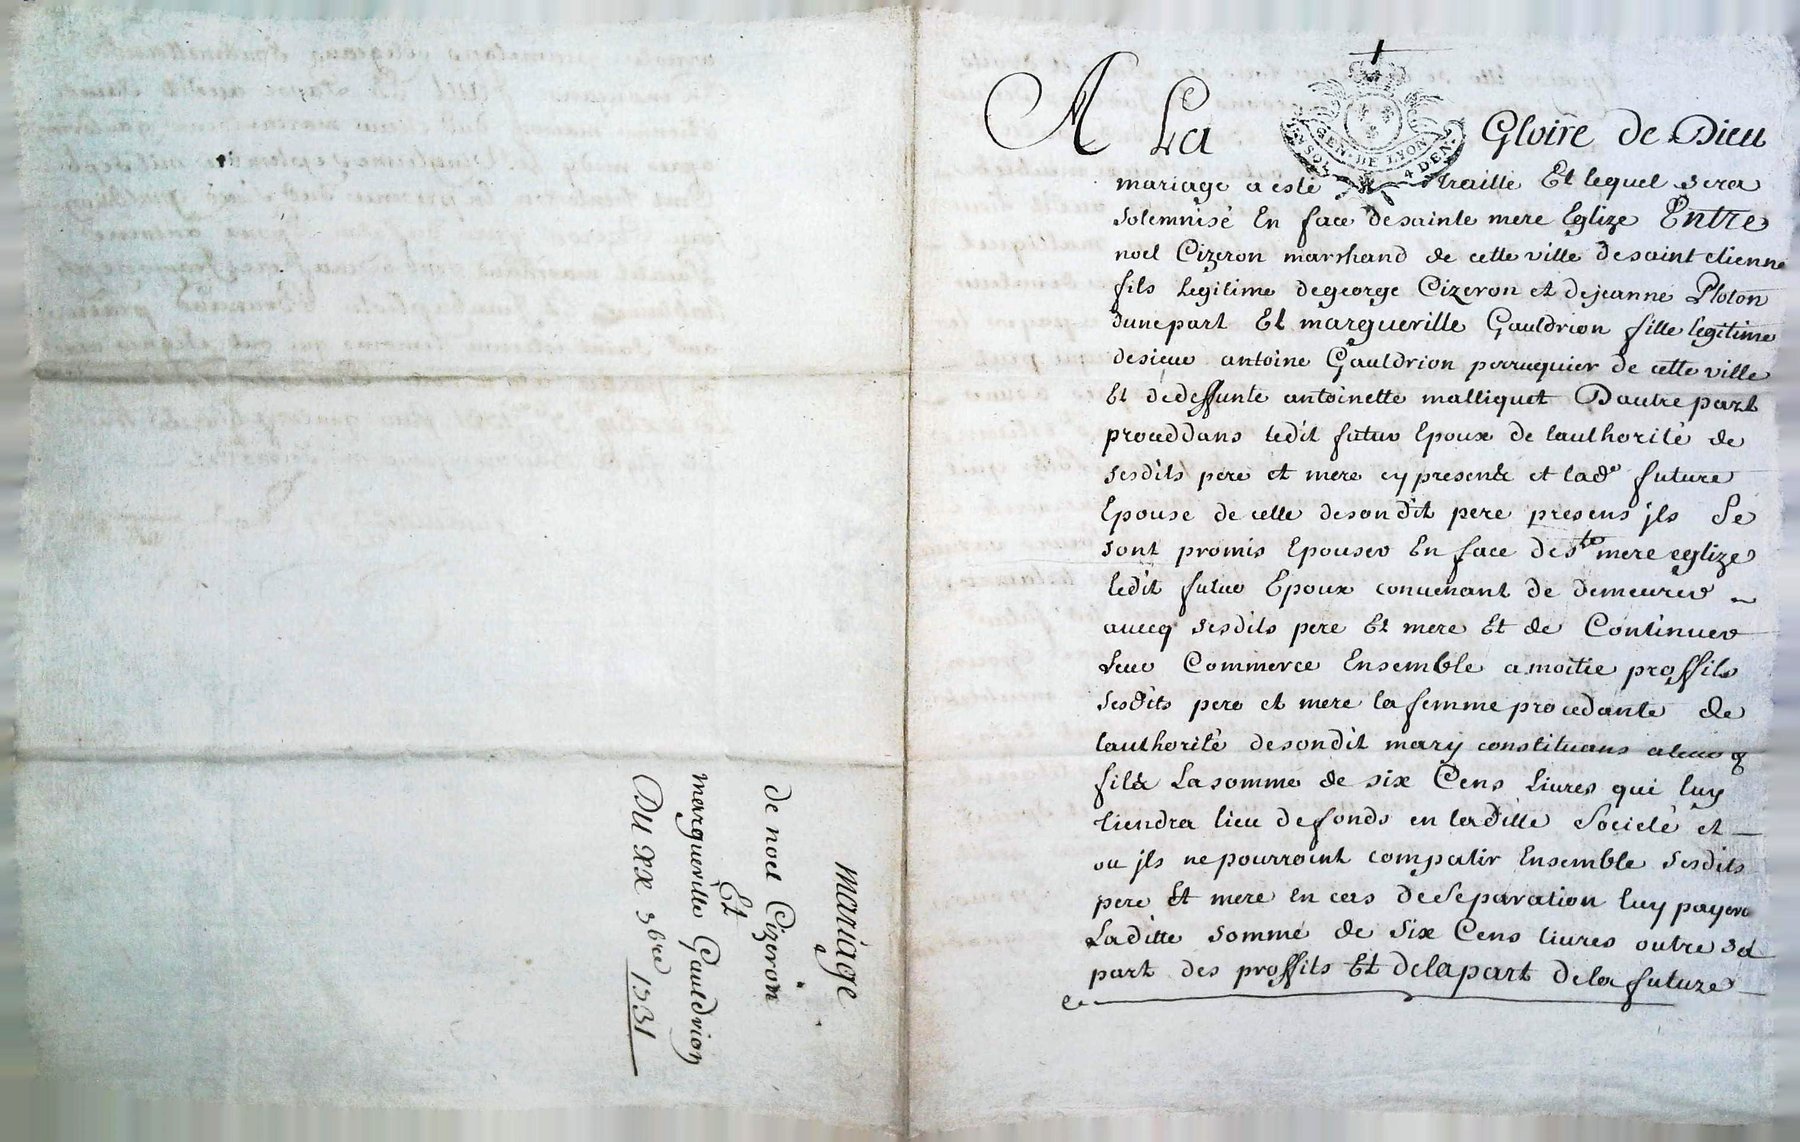 mariage
de noel Cizeron
Et
margueritte Gauldrion
DU XX 3bre 1331
A La Gloire de Dieu
GEN. DE LYON
4 DEN.
mariage a esté traitté Et lequel sera
solemnisé En face de sainte mere Eglize Entre
noel Cizeron marchand de cette ville de saint etienne
fils legitime de george Cizeron et de jeanne Ploton
dune part Et margueritte Gauldrion fille legitime
de sieur antoine Gauldrion perruquier de cette ville
Et de deffunte antoinette malliquet Dautre part
proceddans ledit futur Epoux de lauthorité de
sesdits pere et mere cy presents et lade future
Epouse de celle de son dit pere presens jls Se
sont promis Epouser En face de ste mere eglize
ledit futur Epoux convenant de demeurer
avecq sesdits pere Et mere Et de Continuer
Leur Commerce Ensemble a moitie proffits
sesdits pere et mere la femme procedante de
lauthorité de son dit mary constituans
fils La somme de six Cens Livres qui luy
tiendra lieu de fonds en laditte Societé et
ou jls ne pourroint compatir Ensemble sesdits
pere Et mere en cas de Separation luy payeront
Laditte somme de Six Cens livres outre sa
part des proffits Et de la part de la future